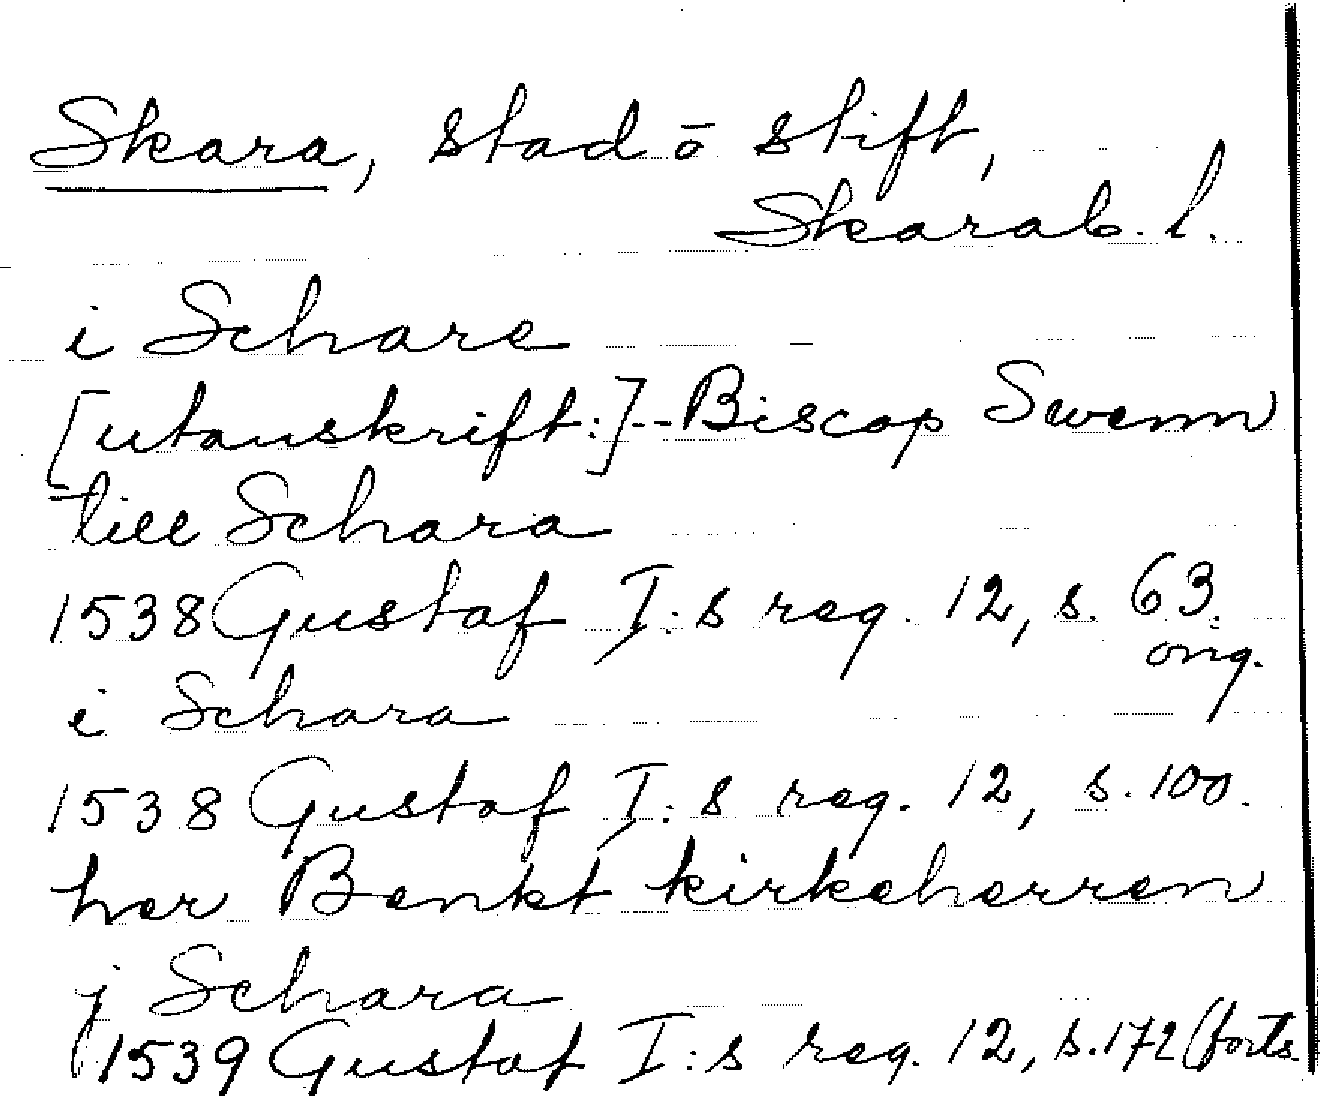 Skara, stad ō stift,
Skarab. l.
i Schare
[utanskrift:]--Biscop Swenn
till Schara
1538 Gustaf I:s reg. 12, s. 63.
orig.
i Schara
1538 Gustaf I:s reg. 12, s. 100.
her Benkt kirkeherren
j Schara
1539 Gustaf I:s reg. 12, s. 172 (forts.